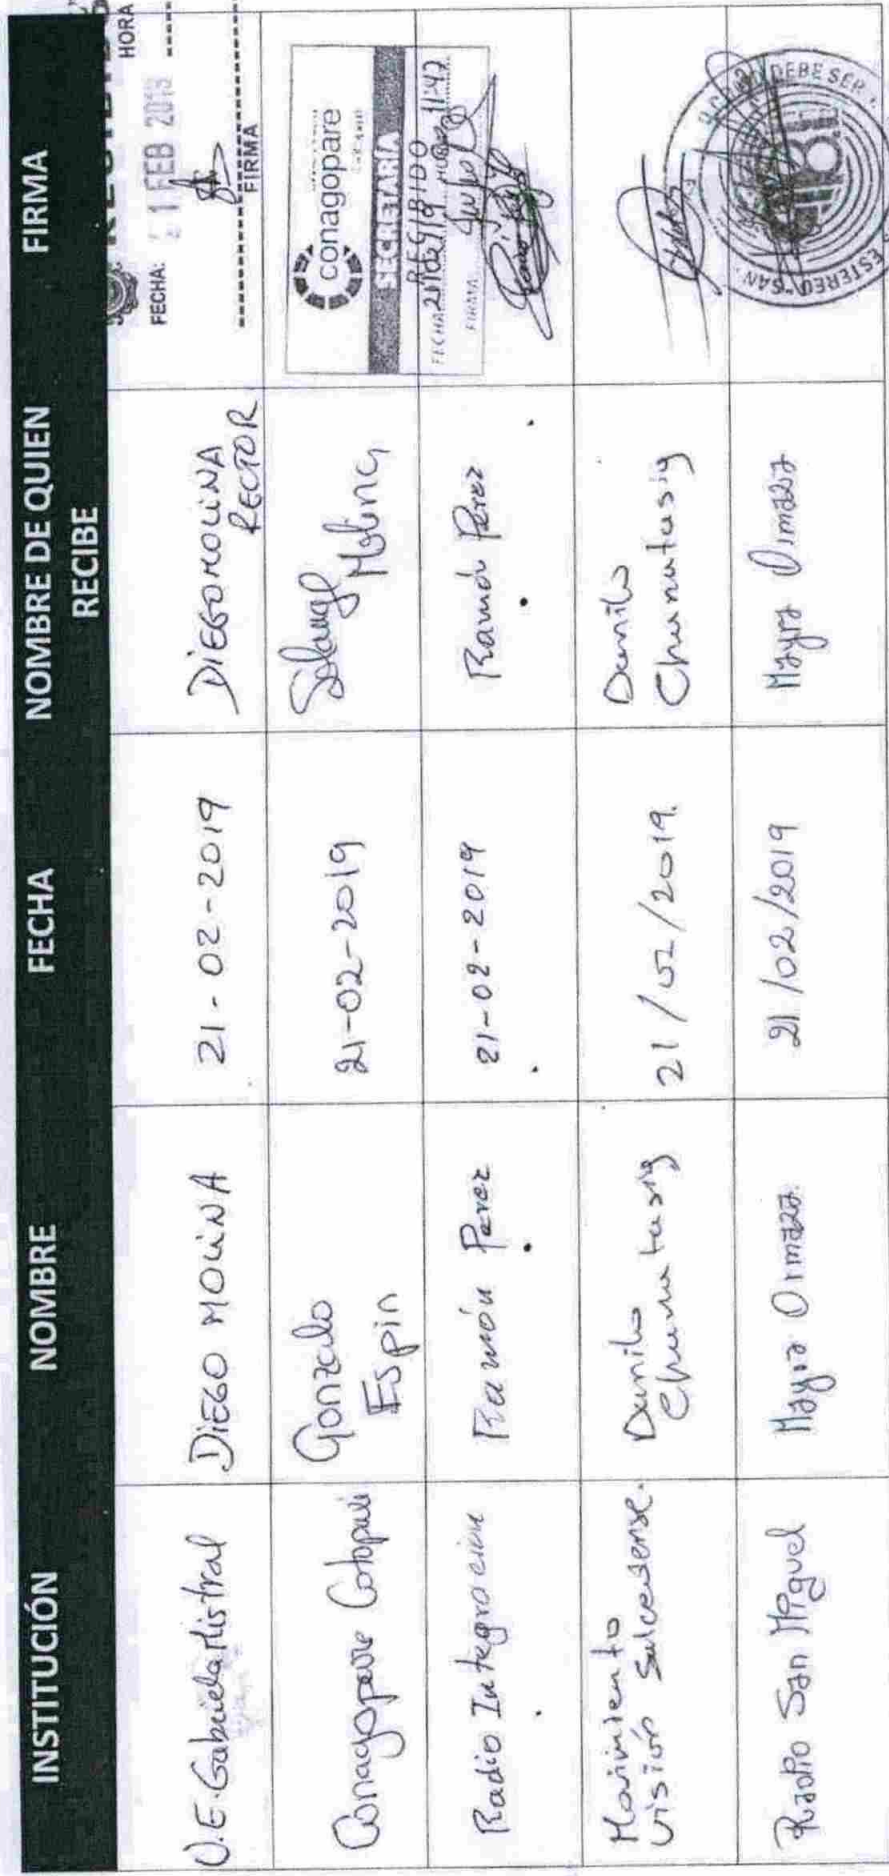 INSTITUCIÓN NOMBRE FECHA NOMBRE DE QUIEN RECIBE FIRMA
U.E. Gabriela Mistral DIEGO MOLINA 21-02-2019 DIEGO MOLINA RECTOR
HORA
FECHA: 21 FEB 2019
FIRMA
Conagopare Cotopaxi Gonzalo Espin 21-02-2019 Solange Molina
conagopare
Cotopaxi
SECRETARIA
RECIBIDO
FECHA 21/02/19 HORA 11:47
FIRMA
Radio Integración Ramón Perez 21-02-2019 Ramón Perez
Movimiento Visión Salcedense. Danilo Chumatasig 21/02/2019. Danilo Chumatasig
Radio San Miguel Mayra Ormaza 21/02/2019 Mayra Ormaza
DEBE SER
ESTEREO SAN